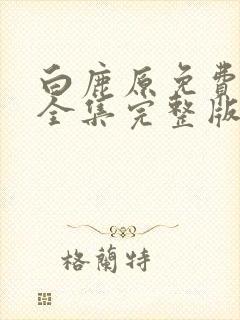 白鹿原免費
全集完整版
格蘭特